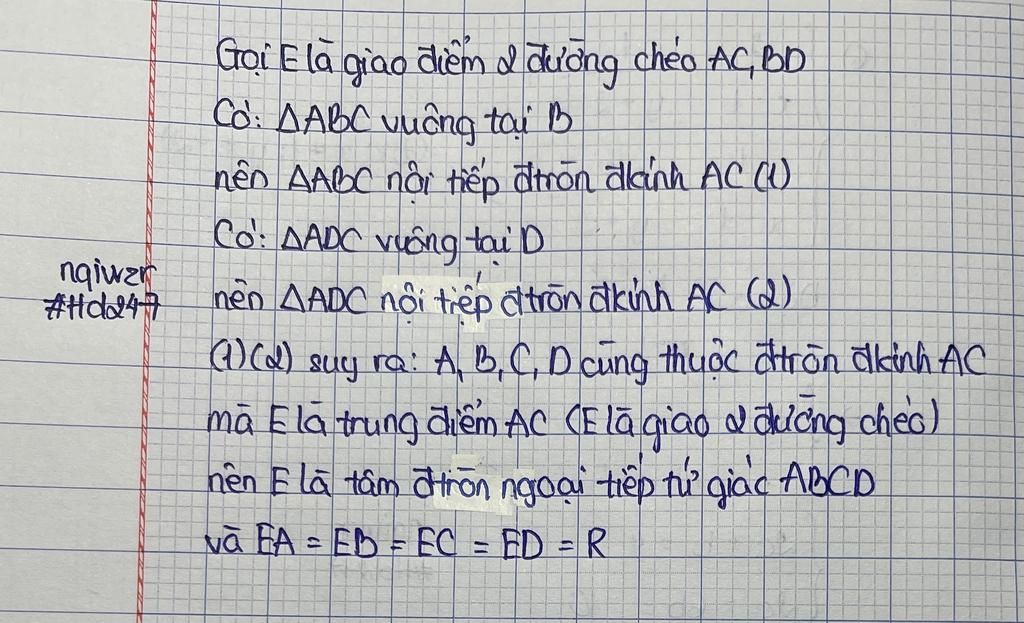 Gọi E là giao điểm 2 đường chéo AC, BD
Có: ΔABC vuông tại B
nên ΔABC nội tiếp đtròn đkính AC (1)
Có: ΔADC vuông tại D
ngiwzr
#Hd247
nên ΔADC nội tiếp đtròn đkính AC (2)
(1)(2) suy ra: A, B, C, D cùng thuộc đtròn đkính AC
mà E là trung điểm AC (E là giao 2 đường chéo)
nên E là tâm đtròn ngoại tiếp tứ giác ABCD
và EA = EB = EC = ED = R